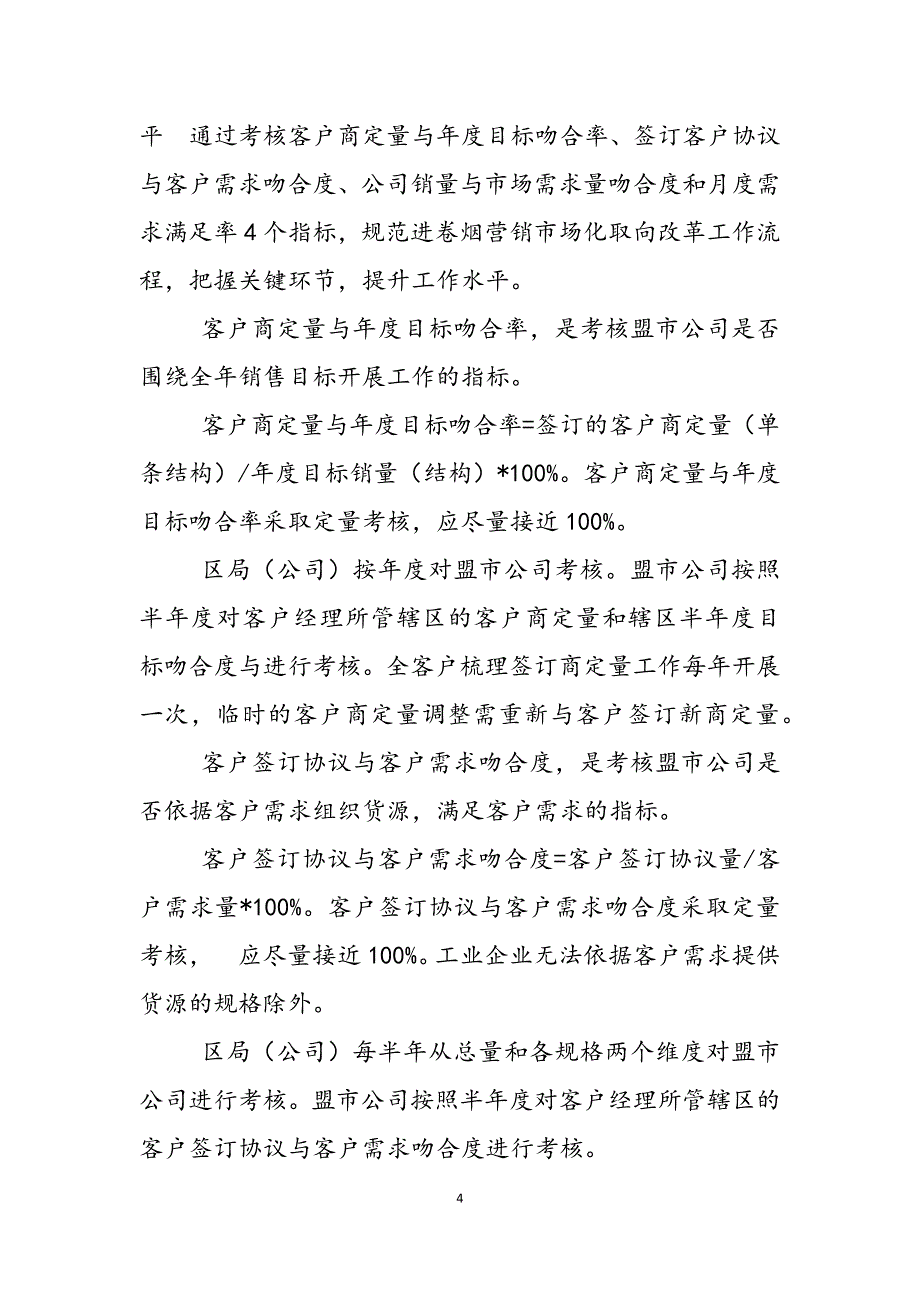 平　通过考核客户商定量与年度目标吻合率、签订客户协议
与客户需求吻合度、公司销量与市场需求量吻合度和月度需
求满足率4个指标，规范进卷烟营销市场化取向改革工作流
程，把握关键环节，提升工作水平。
客户商定量与年度目标吻合率，是考核盟市公司是否
围绕全年销售目标开展工作的指标。
客户商定量与年度目标吻合率=签订的客户商定量（单
条结构）/年度目标销量（结构）*100%。客户商定量与年度
目标吻合率采取定量考核，应尽量接近100%。
区局（公司）按年度对盟市公司考核。盟市公司按照
半年度对客户经理所管辖区的客户商定量和辖区半年度目
标吻合度与进行考核。全客户梳理签订商定量工作每年开展
一次，临时的客户商定量调整需重新与客户签订新商定量。
客户签订协议与客户需求吻合度，是考核盟市公司是
否依据客户需求组织货源，满足客户需求的指标。
客户签订协议与客户需求吻合度=客户签订协议量/客
户需求量*100%。客户签订协议与客户需求吻合度采取定量
考核，　应尽量接近100%。工业企业无法依据客户需求提供
货源的规格除外。
区局（公司）每半年从总量和各规格两个维度对盟市
公司进行考核。盟市公司按照半年度对客户经理所管辖区的
客户签订协议与客户需求吻合度进行考核。
4